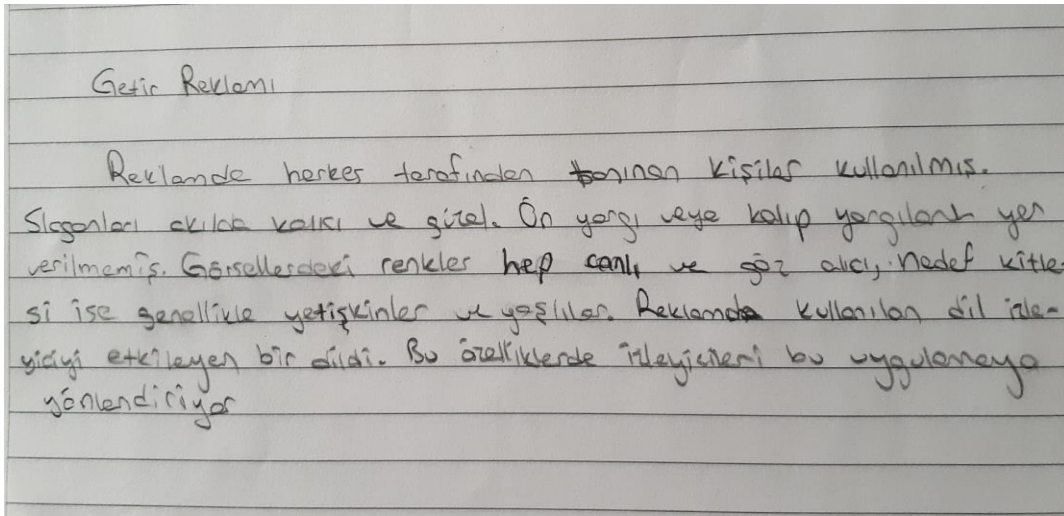 Getir Reklamı
Reklamda herkes tarafından tanınan kişiler kullanılmış.
Sloganları akılda kalıcı ve güzel. Ön yargı veya kalıp yargılara yer
verilmemiş. Görsellerdeki renkler hep canlı ve göz alıcı, hedef kitle-
si ise genellikle yetişkinler ve yaşlılar. Reklamda kullanılan dil izle-
yiciyi etkileyen bir dildi. Bu özelliklerde izleyicileri bu uygulamaya
yönlendiriyor